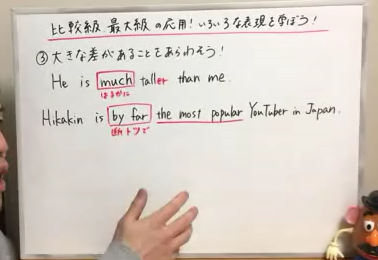 比較級 最大級の応用!いろいろな表現を学ぼう!
③大きな差があることをあらわそう!
He is much taller than me.
はるかに
Hikakin is by far the most popular YouTuber in Japan.
断トツで